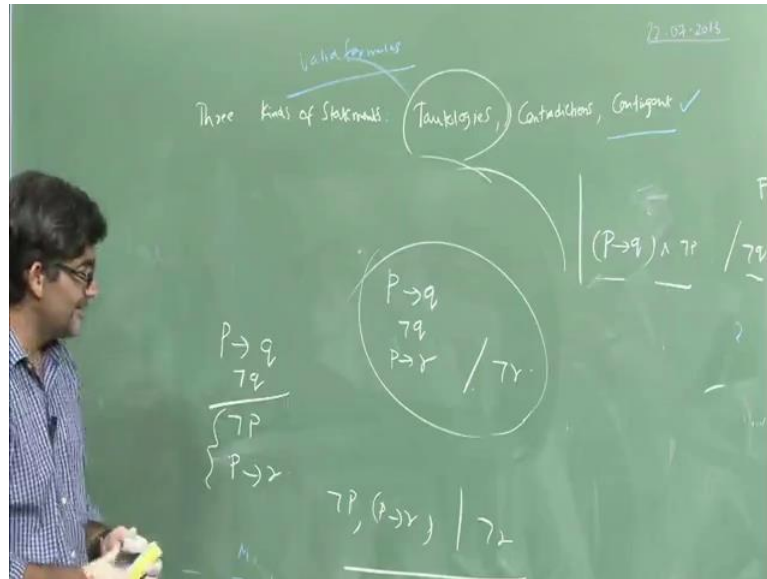 22.07.2013
Valid formulas
Three Kinds of Statements. Tautologies, Contradictions, Contingent ✓
(P→q) ∧ ¬P / ¬q
P→q
¬q
P→r / ¬r
P→q
¬q
¬P
P→r
¬P, (P→r), | ¬r